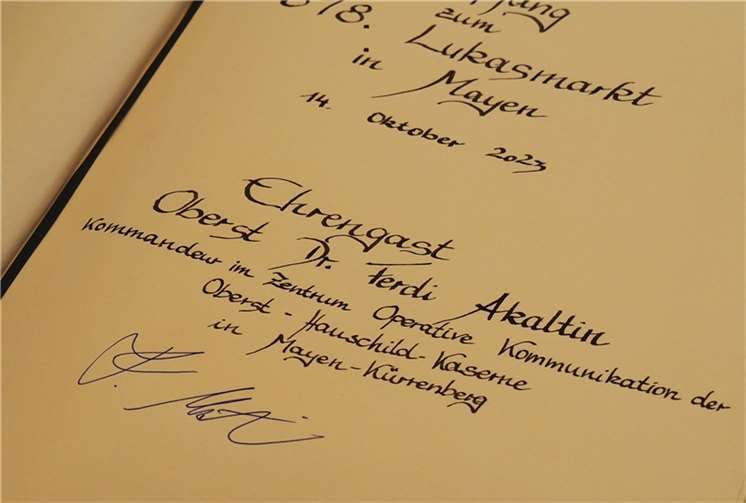 zum
618. Lukasmarkt
in Mayen
14. Oktober 2023
Ehrengast
Oberst Dr. Ferdi Akaltin
Kommandeur im Zentrum Operative Kommunikation der
Oberst-Hauschild-Kaserne
in Mayen-Kürrenberg